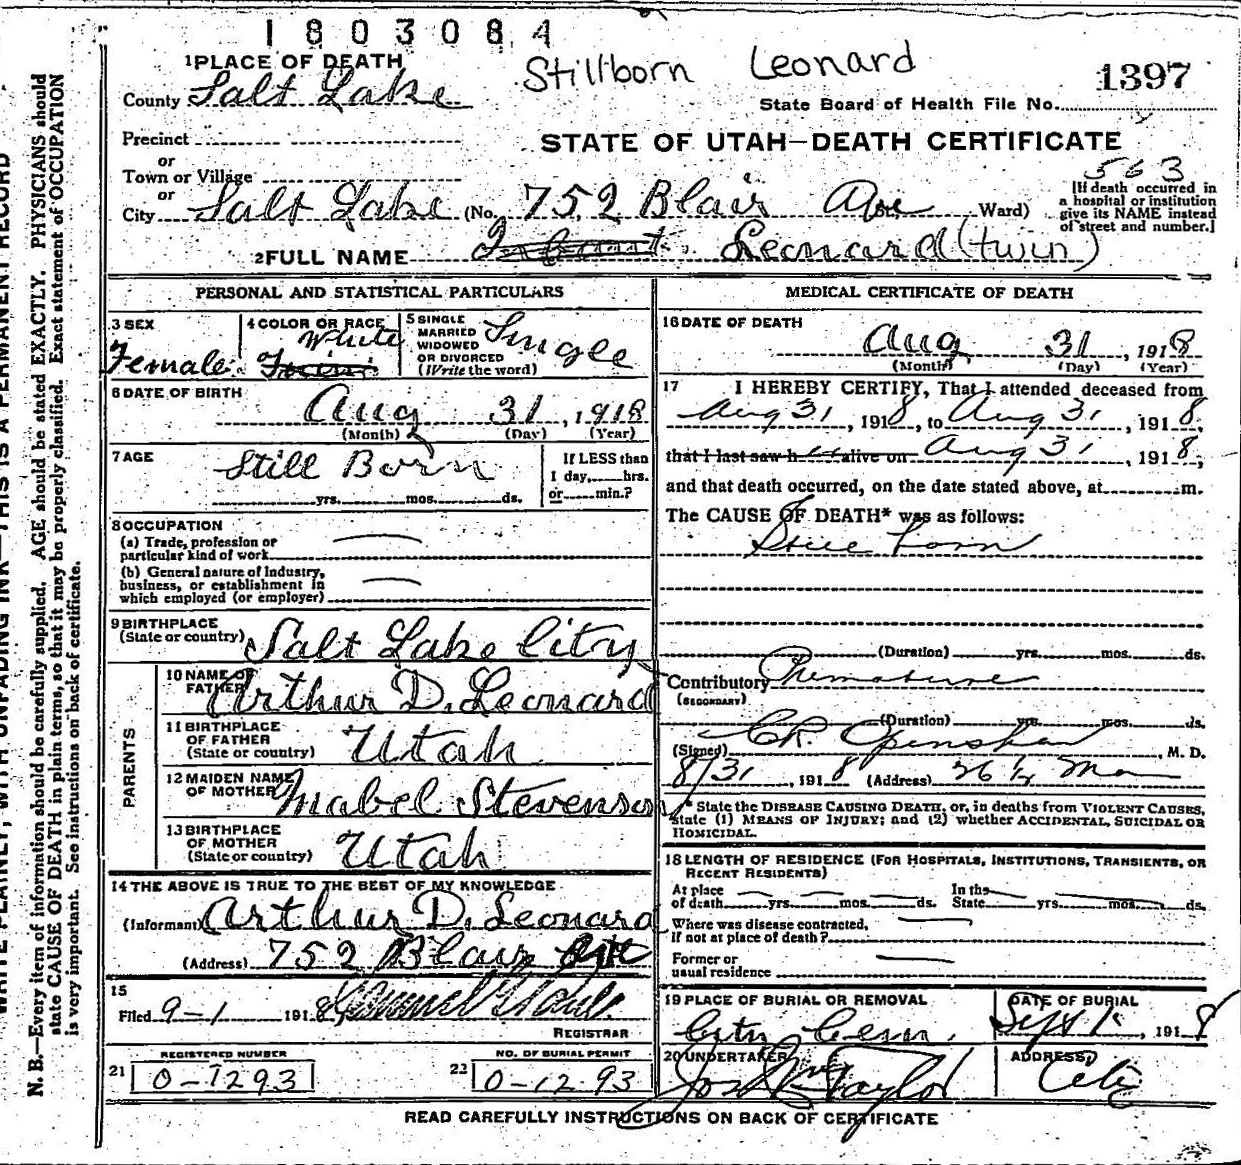 1803084
Stillborn Leonard
1 PLACE OF DEATH
1397
County Salt Lake
State Board of Health File No.
Precinct
STATE OF UTAH—DEATH CERTIFICATE
or
Town or Village
563
or
City Salt Lake (No. 752 Blair Ave St. Ward)
[If death occurred in
a hospital or institution
give its NAME instead
of street and number.]
2 FULL NAME Infant Leonard (twin)
PERSONAL AND STATISTICAL PARTICULARS
3 SEX
Female
4 COLOR OR RACE
White
Twin
5 SINGLE
MARRIED
WIDOWED
OR DIVORCED
(Write the word)
Single
6 DATE OF BIRTH
Aug 31, 1918
(Month) (Day) (Year)
7 AGE
Still Born
yrs. mos. ds.
If LESS than
1 day, hrs.
or min.?
8 OCCUPATION
(a) Trade, profession or
particular kind of work
(b) General nature of Industry,
business, or establishment in
which employed (or employer)
9 BIRTHPLACE
(State or country) Salt Lake City
PARENTS
10 NAME OF
FATHER Arthur D. Leonard
11 BIRTHPLACE
OF FATHER
(State or country) Utah
12 MAIDEN NAME
OF MOTHER Mabel Stevenson
13 BIRTHPLACE
OF MOTHER
(State or country) Utah
14 THE ABOVE IS TRUE TO THE BEST OF MY KNOWLEDGE
(Informant) Arthur D. Leonard
(Address) 752 Blair
15
Filed 9-1 1918
REGISTRAR
REGISTERED NUMBER
21 0-1293
NO. OF BURIAL PERMIT
22 0-1293
MEDICAL CERTIFICATE OF DEATH
16 DATE OF DEATH
Aug 31, 1918
(Month) (Day) (Year)
17 I HEREBY CERTIFY, That I attended deceased from
Aug 31, 1918, to Aug 31, 1918,
that I last saw h alive on Aug 31, 1918,
and that death occurred, on the date stated above, at m.
The CAUSE OF DEATH* was as follows:
Still born
(Duration) yrs. mos. ds.
Contributory Premature
(SECONDARY)
(Duration) yrs. mos. ds.
(Signed) CR Openshaw, M. D.
8/31, 1918 (Address)
* State the DISEASE CAUSING DEATH, or, in deaths from VIOLENT CAUSES,
state (1) MEANS OF INJURY; and (2) whether ACCIDENTAL, SUICIDAL OR
HOMICIDAL.
18 LENGTH OF RESIDENCE (FOR HOSPITALS, INSTITUTIONS, TRANSIENTS, OR
RECENT RESIDENTS)
At place
of death yrs. mos. ds.
In the
State yrs. mos. ds.
Where was disease contracted,
if not at place of death?
Former or
usual residence
19 PLACE OF BURIAL OR REMOVAL
City Cem.
DATE OF BURIAL
Sept 1, 1918
20 UNDERTAKER
Taylor
ADDRESS,
City
READ CAREFULLY INSTRUCTIONS ON BACK OF CERTIFICATE
WRITE PLAINLY, WITH UNFADING INK—THIS IS A PERMANENT RECORD
N. B.—Every item of information should be carefully supplied. AGE should be stated EXACTLY. PHYSICIANS should
state CAUSE OF DEATH in plain terms, so that it may be properly classified. Exact statement of OCCUPATION
is very important. See instructions on back of certificate.